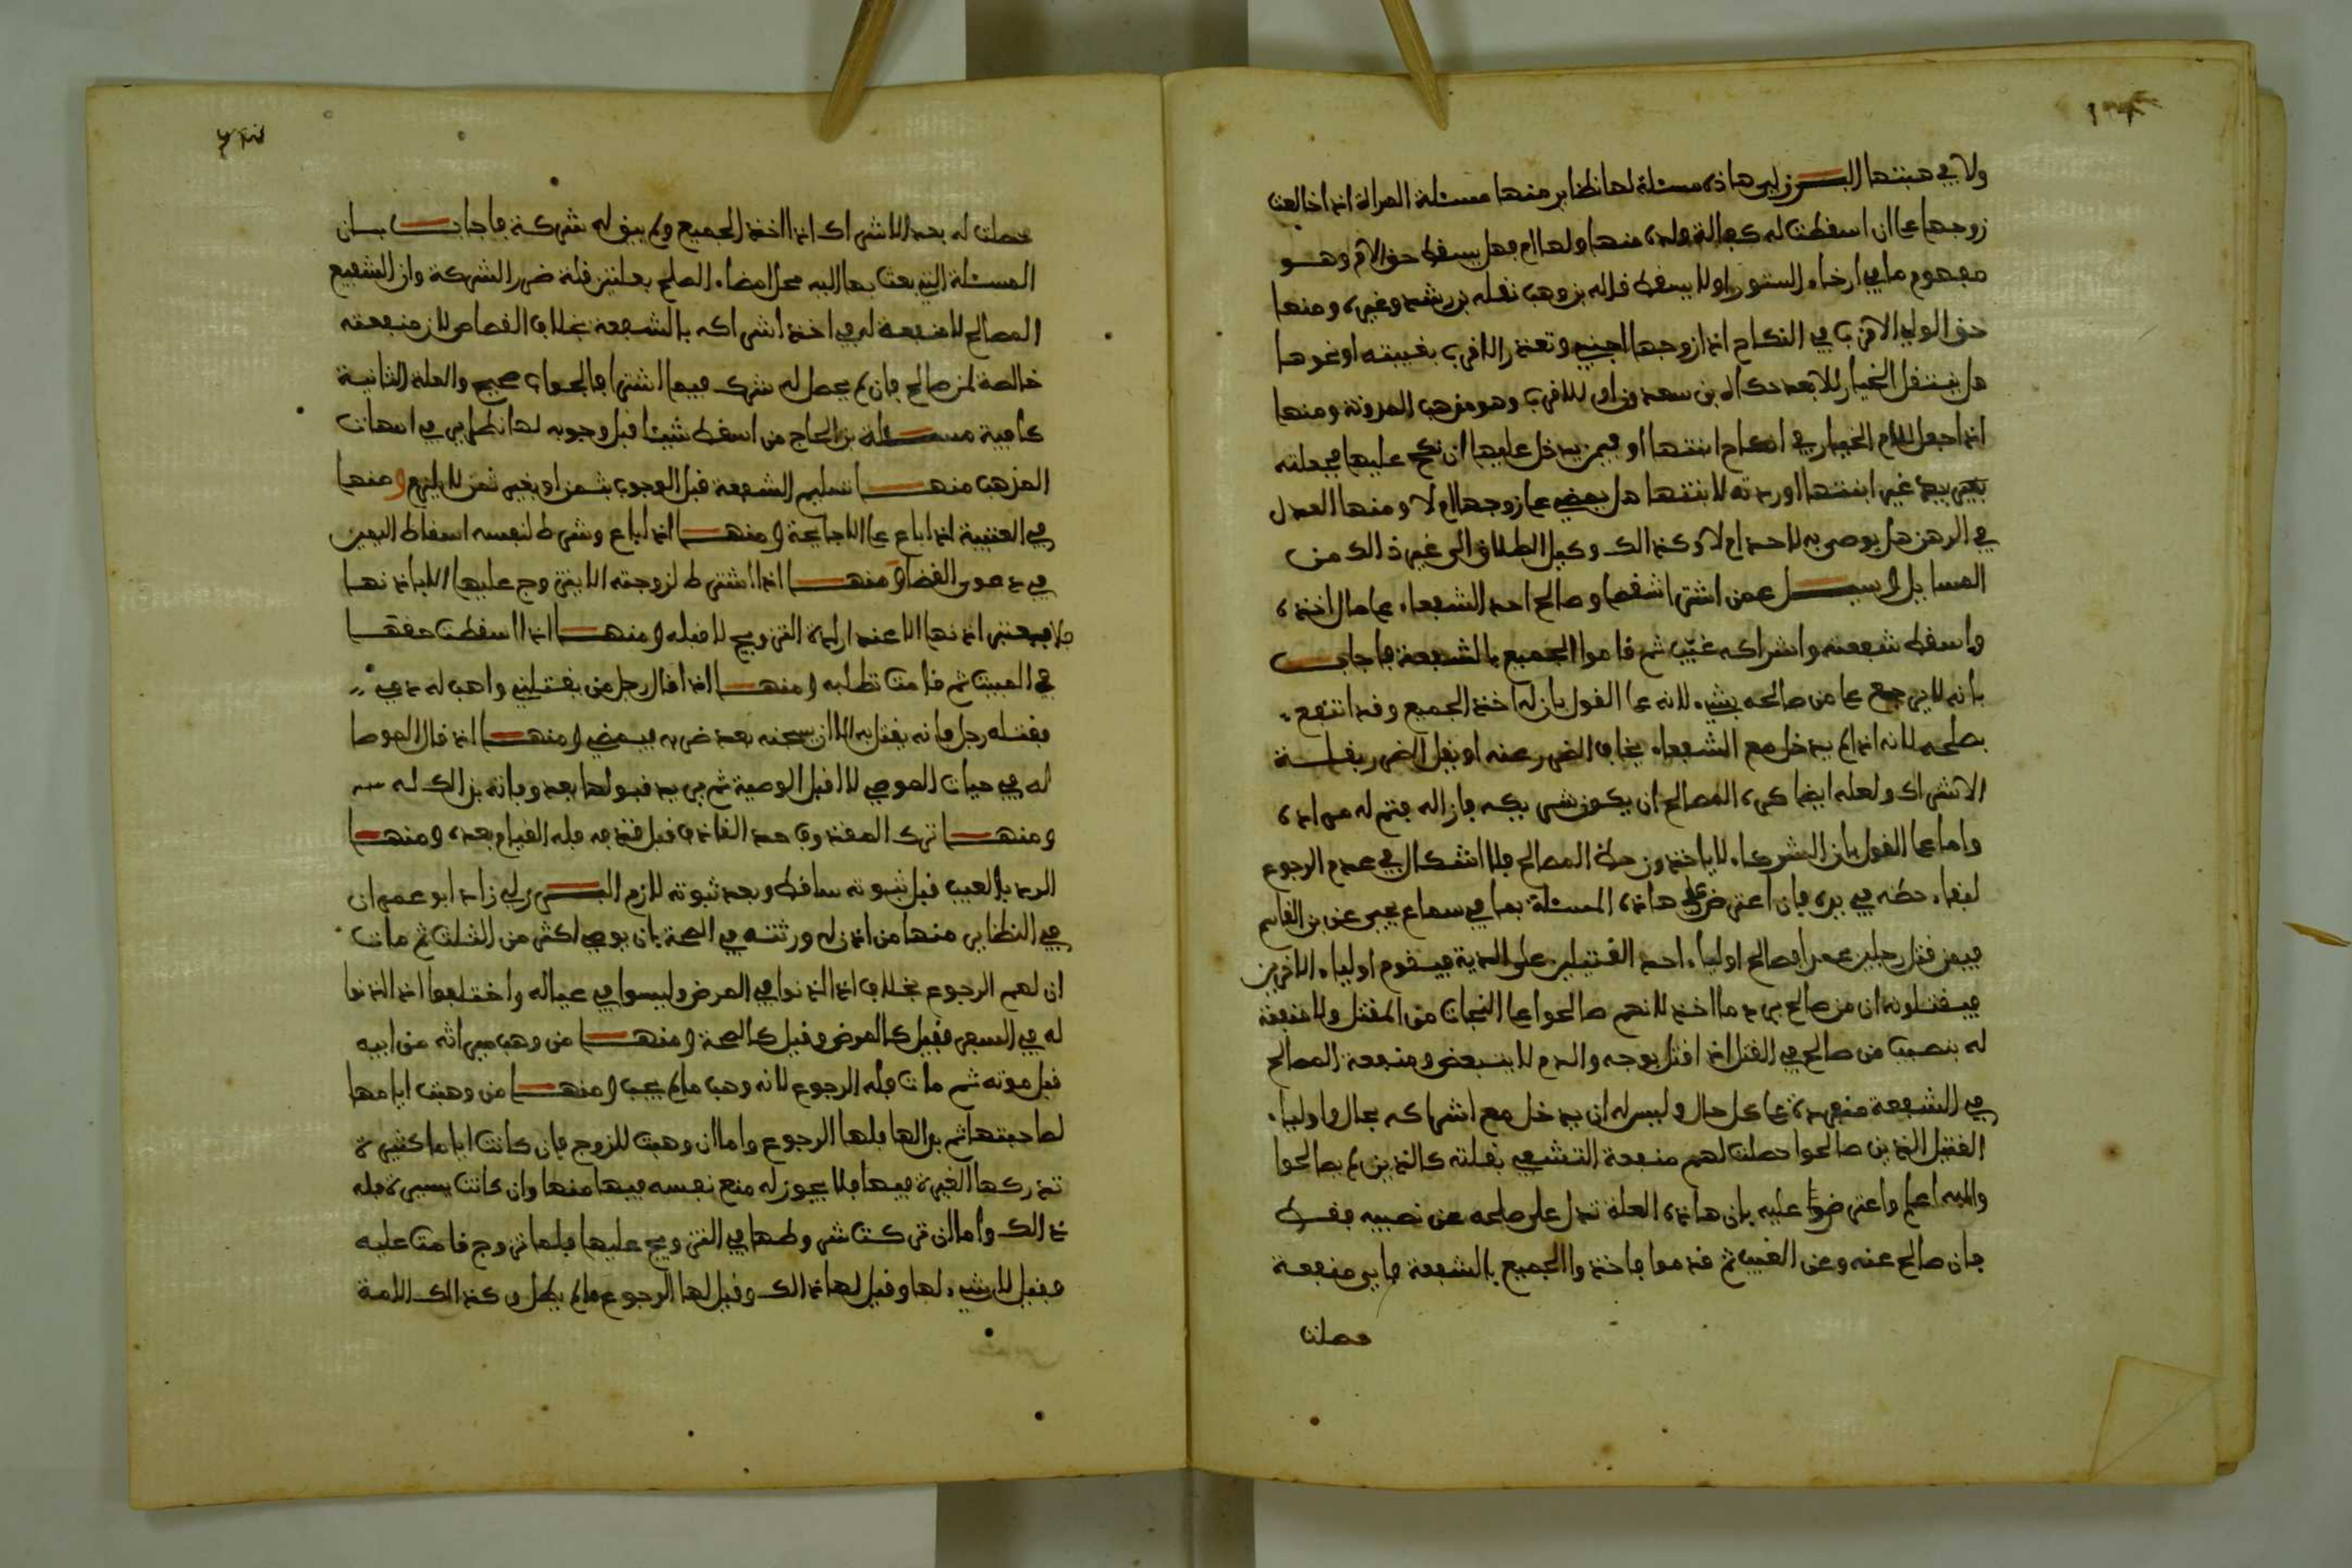 ولا في هبتها البرزلي هاذه مسئلة لها نظاير منها مسئلة المراة اذا خالعت
زوجها على ان اسقطت له كفالة ولده منها ولها ام فهل يسقط حق الام وهو
مفهوم ما في ارخاء الستور او لا يسقط قاله بن وهب نقله بن رشد وغيره ومنها
حق الولي الاقرب في النكاح اذا زوجها اجنبي وتعذر الاقرب بغيبته او نحوها
هل ينتقل الخيار للابعد حكاه بن سعدون او للاقرب وهو مذهب المدونة ومنها
اذا جعل للام الخيار في انكاح ابنتها او فيمن يدخل عليها ان نكح عليها فجعلته
بيد غير ابنتها اوردته لابنتها هل يمضي على زوجها ام لا ومنها العدل
في الرهن هل يوصى به لاحد ام لا وكذالك وكيل الطلاق الى غير ذالك من
المسايل وسيل عمن اشترا شقصا وصالح احد الشفعاء على مال اخذه
واسقط شفعته واشراكه غيّب ثم قاموا الجميع بالشفعة فاجاب
بانه لا يرجع على من صالحه بشيء لانه على القول بان له اخذ الجميع وقد انتفع
بصلحه لانه اذا لم يدخل مع الشفعاء يخاف الضرر عنه او يقل الضرر بقلة
الاشراك ولعله ايضا كره المصالح ان يكون شريكه فازاله فتم له مراده
واما على القول بان الشركاء لا ياخذون حظ المصالح فلا اشكال في عدم الرجوع
لبقاء حظه في يده فان اعترض على هاذه المسئلة بما في سماع يحيى عن بن القاسم
فيمن قتل رجلين عمدا فصالح اولياء احد القتيلين على الدية فيقوم اولياء الاخرين
فيقتلونه ان من صالح يرد ما اخذ لانهم صالحوا على النجات من القتل ولا منفعة
له بنصيب من صالح في القتل اذ اقتل بوجه والدم لا يتبعض ومنفعة المصالح
في الشفعة منفردة على كل حال وليس له ان يدخل مع اشراكه بحال واولياء
القتيل الذين صالحوا حصلت لهم منفعة التشفي بقتله كالذين لم يصالحوا
والله اعلم واعترض عليه بان هاذه العلة تدل على صلحه عن نصيبه فقط
فان صالح عنه وعن الغيب ثم قدموا فاخذوا الجميع بالشفعة فاي منفعة
حصلت
حصلت له بعد الاشراك اذا اخذ الجميع ولم يبق له شركة فاجاب بان
المسئلة التي بعث بها اليه محل امضاء الصلح بعلتين قلة ضرر الشركة وان الشفيع
المصالح لا منفعة له في اخذ اشراكه بالشفعة بخلاف القصاص لان منفعته
خالصة لمن صالح فان لم يحصل له شرك فيما اشترا فالجواب صحيح والعلة الثانية
كافية مسئلة بن الحاج من اسقط شيئا قبل وجوبه لها نظاير في امهات
المذهب منها تسليم الشفعة قبل الوجوب بثمن او بغير ثمن لا يلزم ومنها
في العتبية اذا باع على الا جايحة ومنها اذا باع وشرط لنفسه اسقاط اليمين
في دعوى القضا ومنها اذا اشترط لزوجته الا يتزوج عليها الا باذنها
اذنها الا عند ارادة التزويج لا قبله ومنها اذا اسقطت حقها
في المبيت ثم قامت تطلبه ومنها اذا قال رجل من يقتلني واهب له دمي
فقتله رجل فانه يقتل به الا ان يسجنه بعد ضربه فيمضي ومنها اذ قال الموصا
له في حيات الموصي لا اقبل الوصية ثم يريد قبولها بعد وفاته فذالك له
ومنها ترك المقذوف حد القاذف قبل قذفه فله القيام بعده ومنها
الرد بالعيب قبل ثبوته ساقط وبعد ثبوته لازم البرزلي زاد ابو عمران
في النظاير منها من اذن له ورثته في الصحة بان يوصي لاكثر من الثلث ثم مات
ان لهم الرجوع بخلاف اذا اذنوا في المرض وليسوا في عياله واختلفوا اذا اذنوا
له في السفر فقيل كالمرض وقيل كالصحة ومنها من وهب ميراثه من ابيه
قبل موته ثم مات فله الرجوع لانه وهب ما لم يجب ومنها من وهبت ايامها
لصاحبتها ثم بدا لها فلها الرجوع واما ان وهبت للزوج فان كانت اياما كثيرة
تدركها الغيرة فيها فلا يجوز له منع نفسه فيها منها وان كانت يسيرة فله
ذالك واما ان تركت شروطها في التزويج عليها فلما تزوج قامت عليه
فقيل لا شيء لها وقيل لها ذالك وقيل لها الرجوع ما لم يطل وكذالك الامة